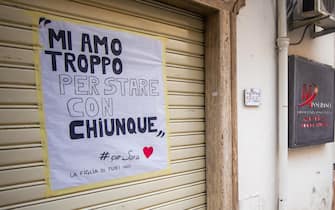 "MI AMO
TROPPO
PER STARE
CON
CHIUNQUE"
#perSara
LA FIGLIA DI TUTTI NOI